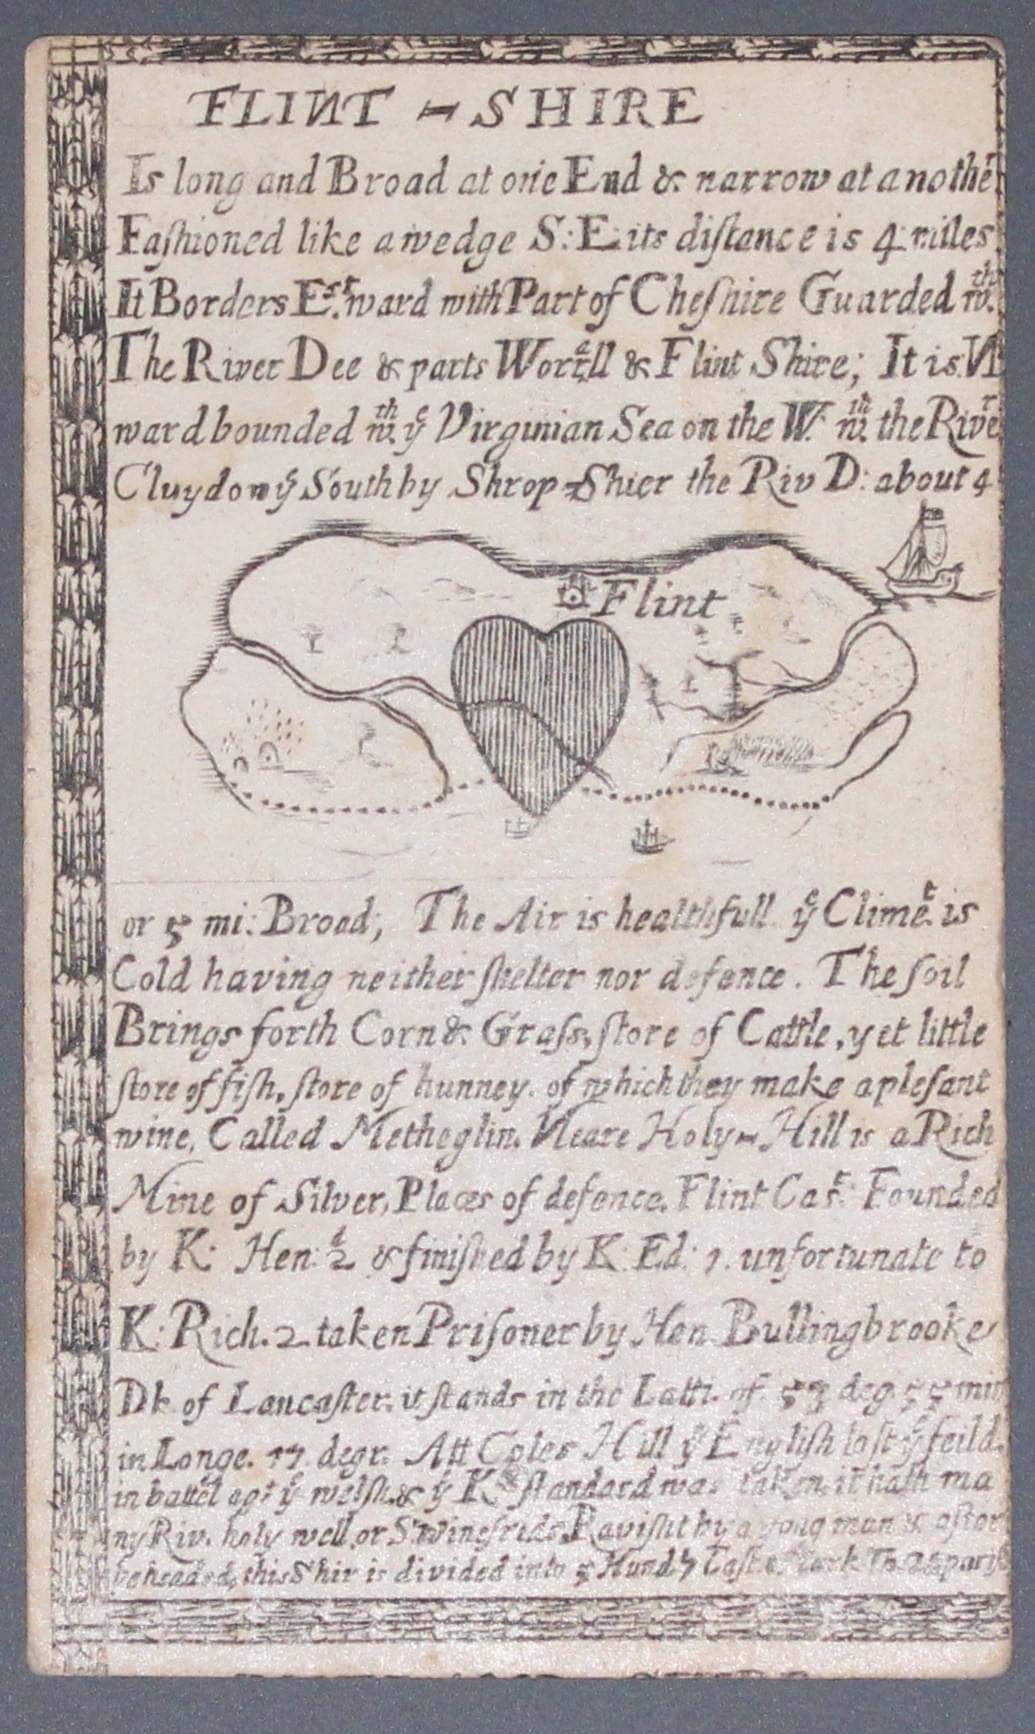 FLINT - SHIRE
Is long and Broad at one End & narrow at anothe^r
Faſhioned like a wedge S:E: its diſtance is 4 miles
It Borders E^st:ward with Part of Cheſhire Guarded w^th.
The River Dee & parts Wor^ell & Flint Shire; It is N
ward bounded w^th. y^e Virginian Sea on the W. w^th. the Rive^r
Cluyd on y^e South by Shrop-Shier the Riv D: about 4
Flint
or 5 mi: Broad; The Air is healthfull y^e Clime^t. is
Cold having neither ſhelter nor defence. The ſoil
Brings forth Corn & Graſs, ſtore of Cattle, yet little
ſtore of fiſh, ſtore of hunney. of which they make a pleſant
wine, Called Metheglin. Neare Holy-Hill is a Rich
Mine of Silver, Places of defence. Flint Cas^t. Founded
by K: Hen: 2^d & finiſhed by K. Ed: 1. unfortunate to
K: Rich. 2 taken Priſoner by Hen Bullingbrooke
Dk of Lancaſter. it ſtands in the Latti. of 53 deg. 55 min
in Longe. 17 degr. Att Coles Hill y^e Engliſh loſt y^e feild.
in battel agt y^e welſh. & y^e K^s ſtandard was taken. it hath ma
ny Riv. holy well, or S^t Winefrids Raviſht by a yong man & after
beheaded, this Shir is divided into 5 Hund